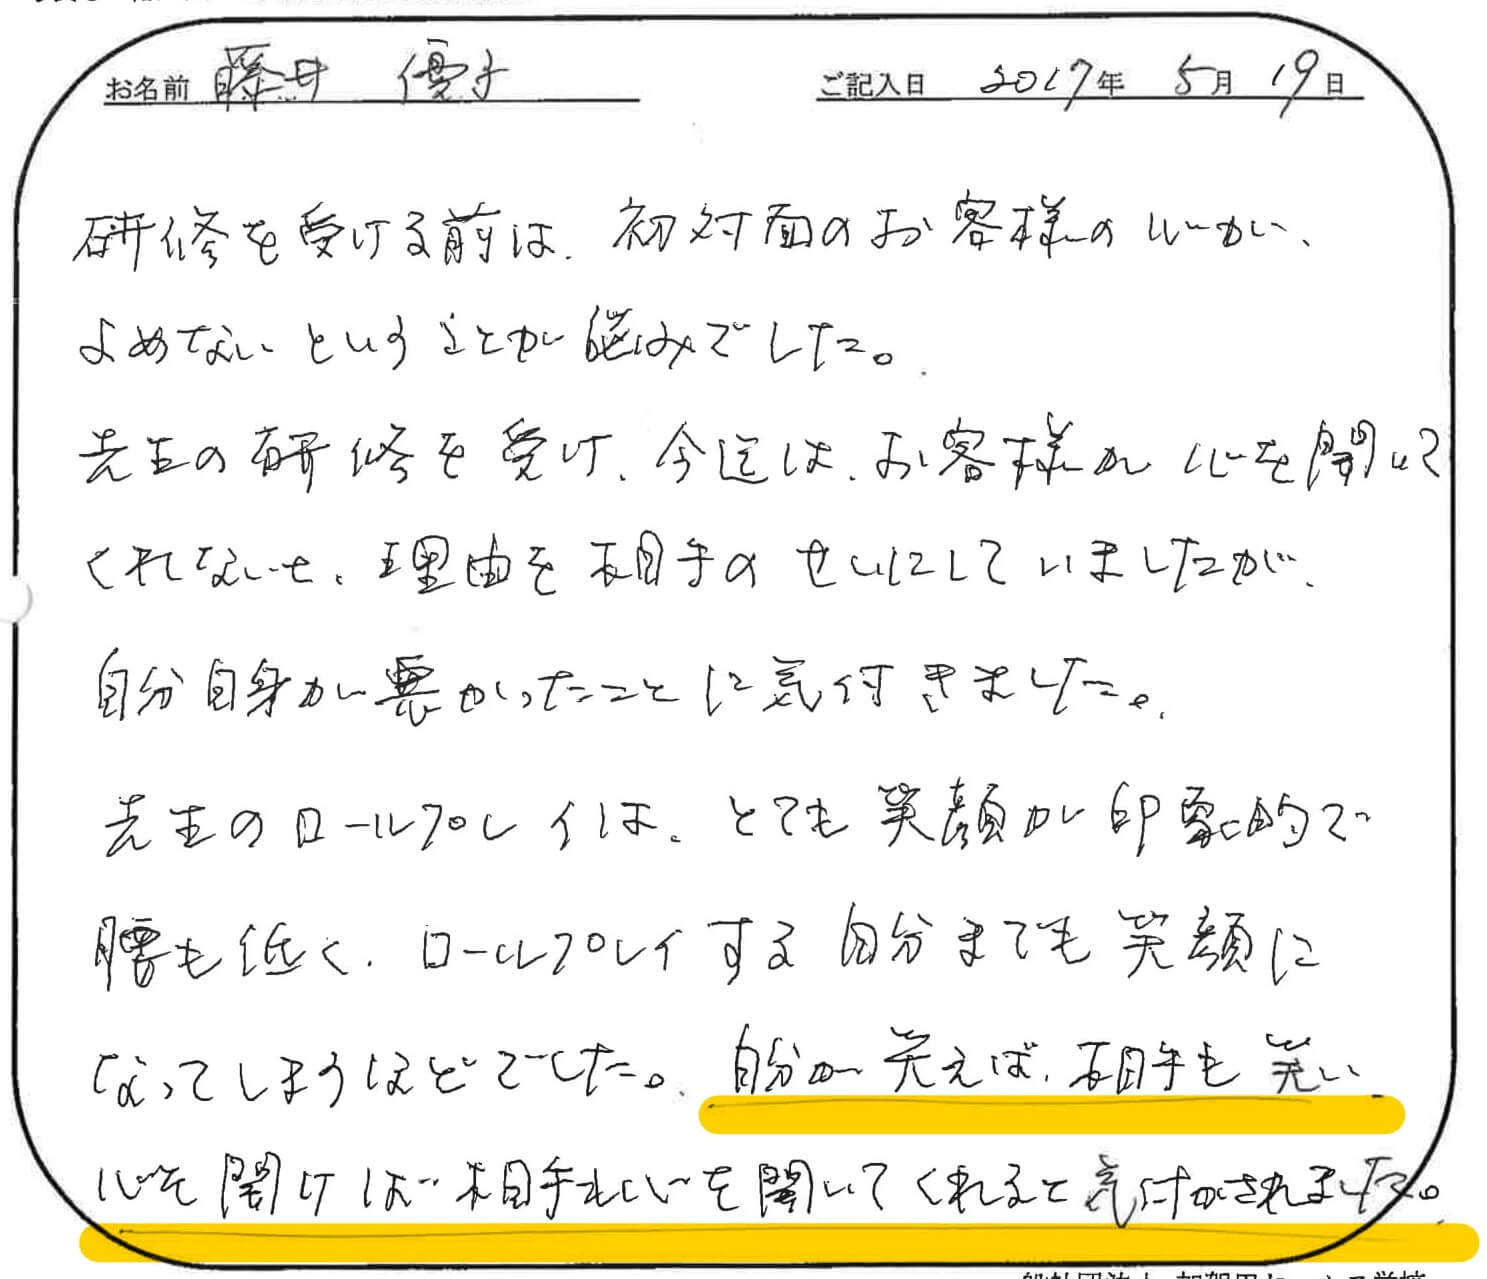 お名前 藤井 優子 ご記入日 2017年 5月 19日
研修を受ける前は、初対面のお客様の心が、
よめないということが悩みでした。
先生の研修を受け、今迄は、お客様が心を開いて
くれないと、理由を相手のせいにしていましたが、
自分自身が悪かったことに気付きました。
先生のロールプレイは、とても笑顔が印象的で
腰も低く、ロールプレイする自分までも笑顔に
なってしまうほどでした。自分が笑えば、相手も笑い
心を開けば相手も心を開いてくれると気付かされました。